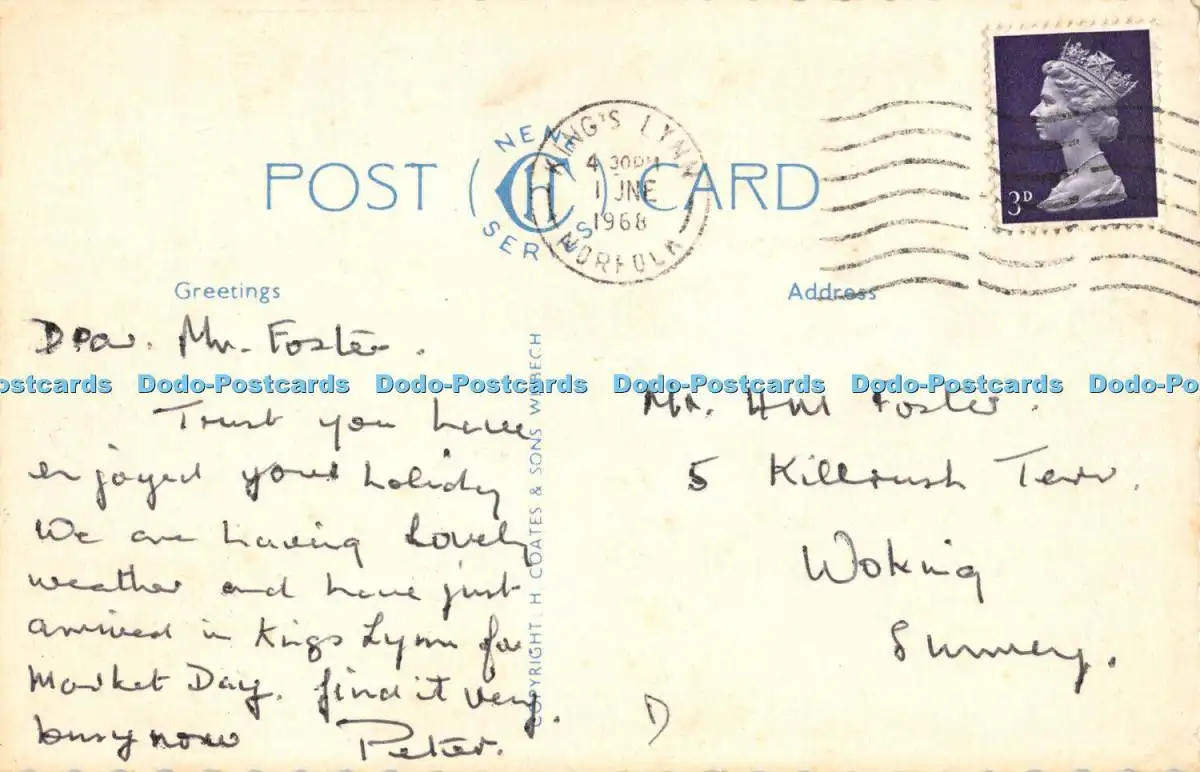 NENE
KING'S LYNN
4 30PM
1 JNE
1968
NORFOLK
POST CARD
SERIES
3D
Greetings
Address
Dear. Mr. Foster.
Dodo-Postcards Dodo-Postcards Dodo-Postcards Dodo-Postcards Dodo-Postcards Dodo-Postcards
Trust you have
enjoyed your holiday
We are having lovely
weather and have just
arrived in Kings Lynn for
Market Day. find it very
busy now Peter.
COPYRIGHT H COATES & SONS WISBECH
Mr. HM Foster.
5 Killrush Terr.
Woking
Surrey.
D